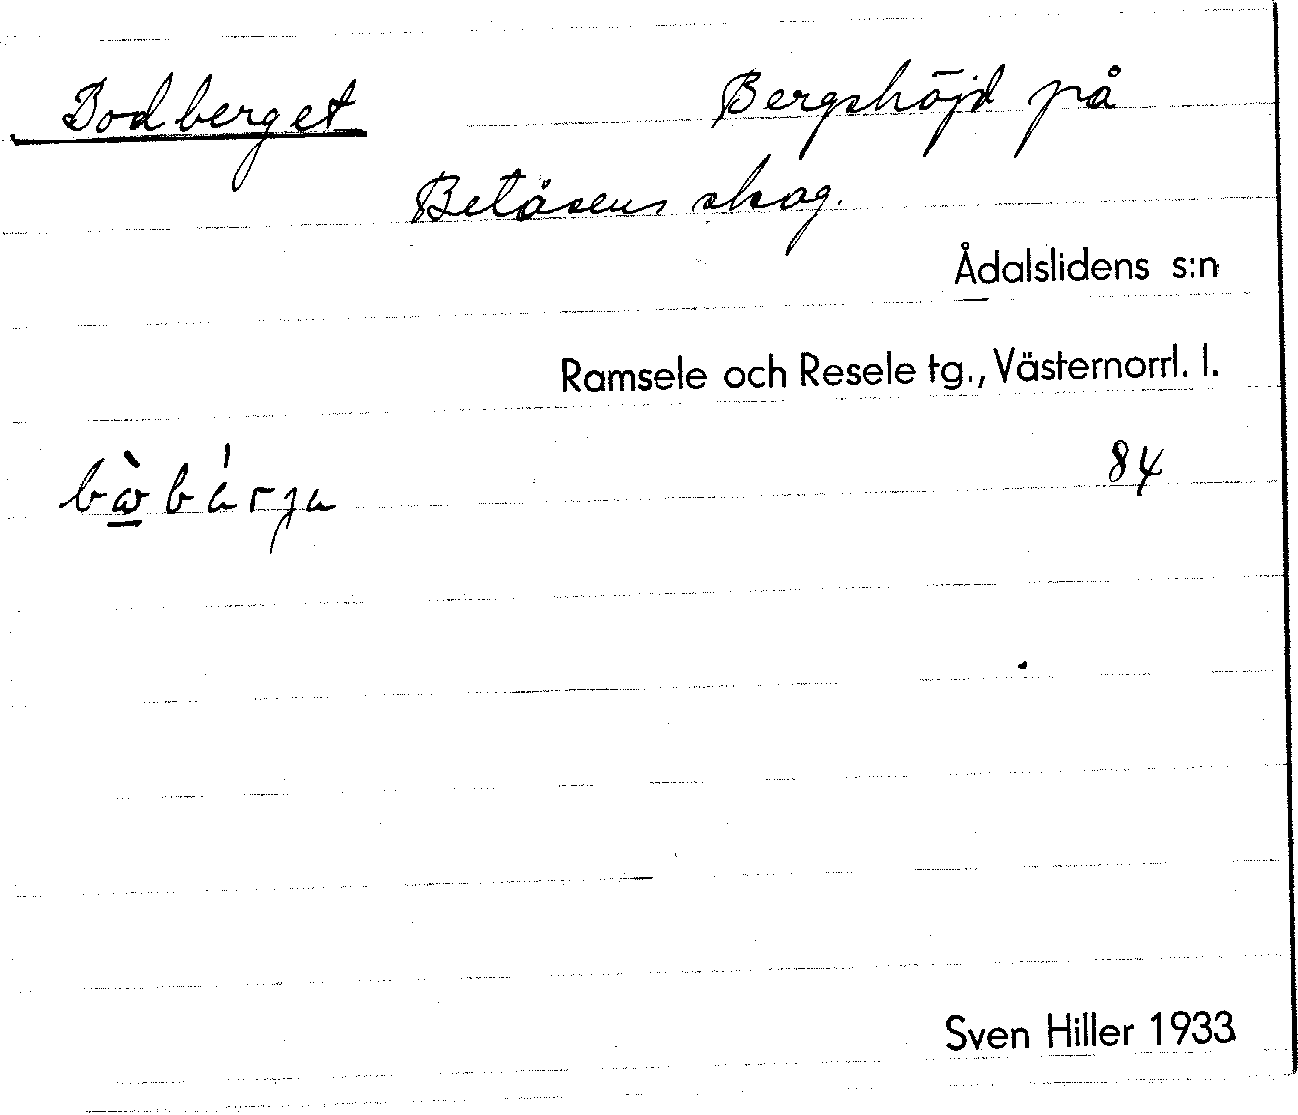 Bodberget Bergshöjd på
Betåsens skog.
Ådalslidens s:n
Ramsele och Resele tg., Västernorrl. l.
84
Sven Hiller 1933